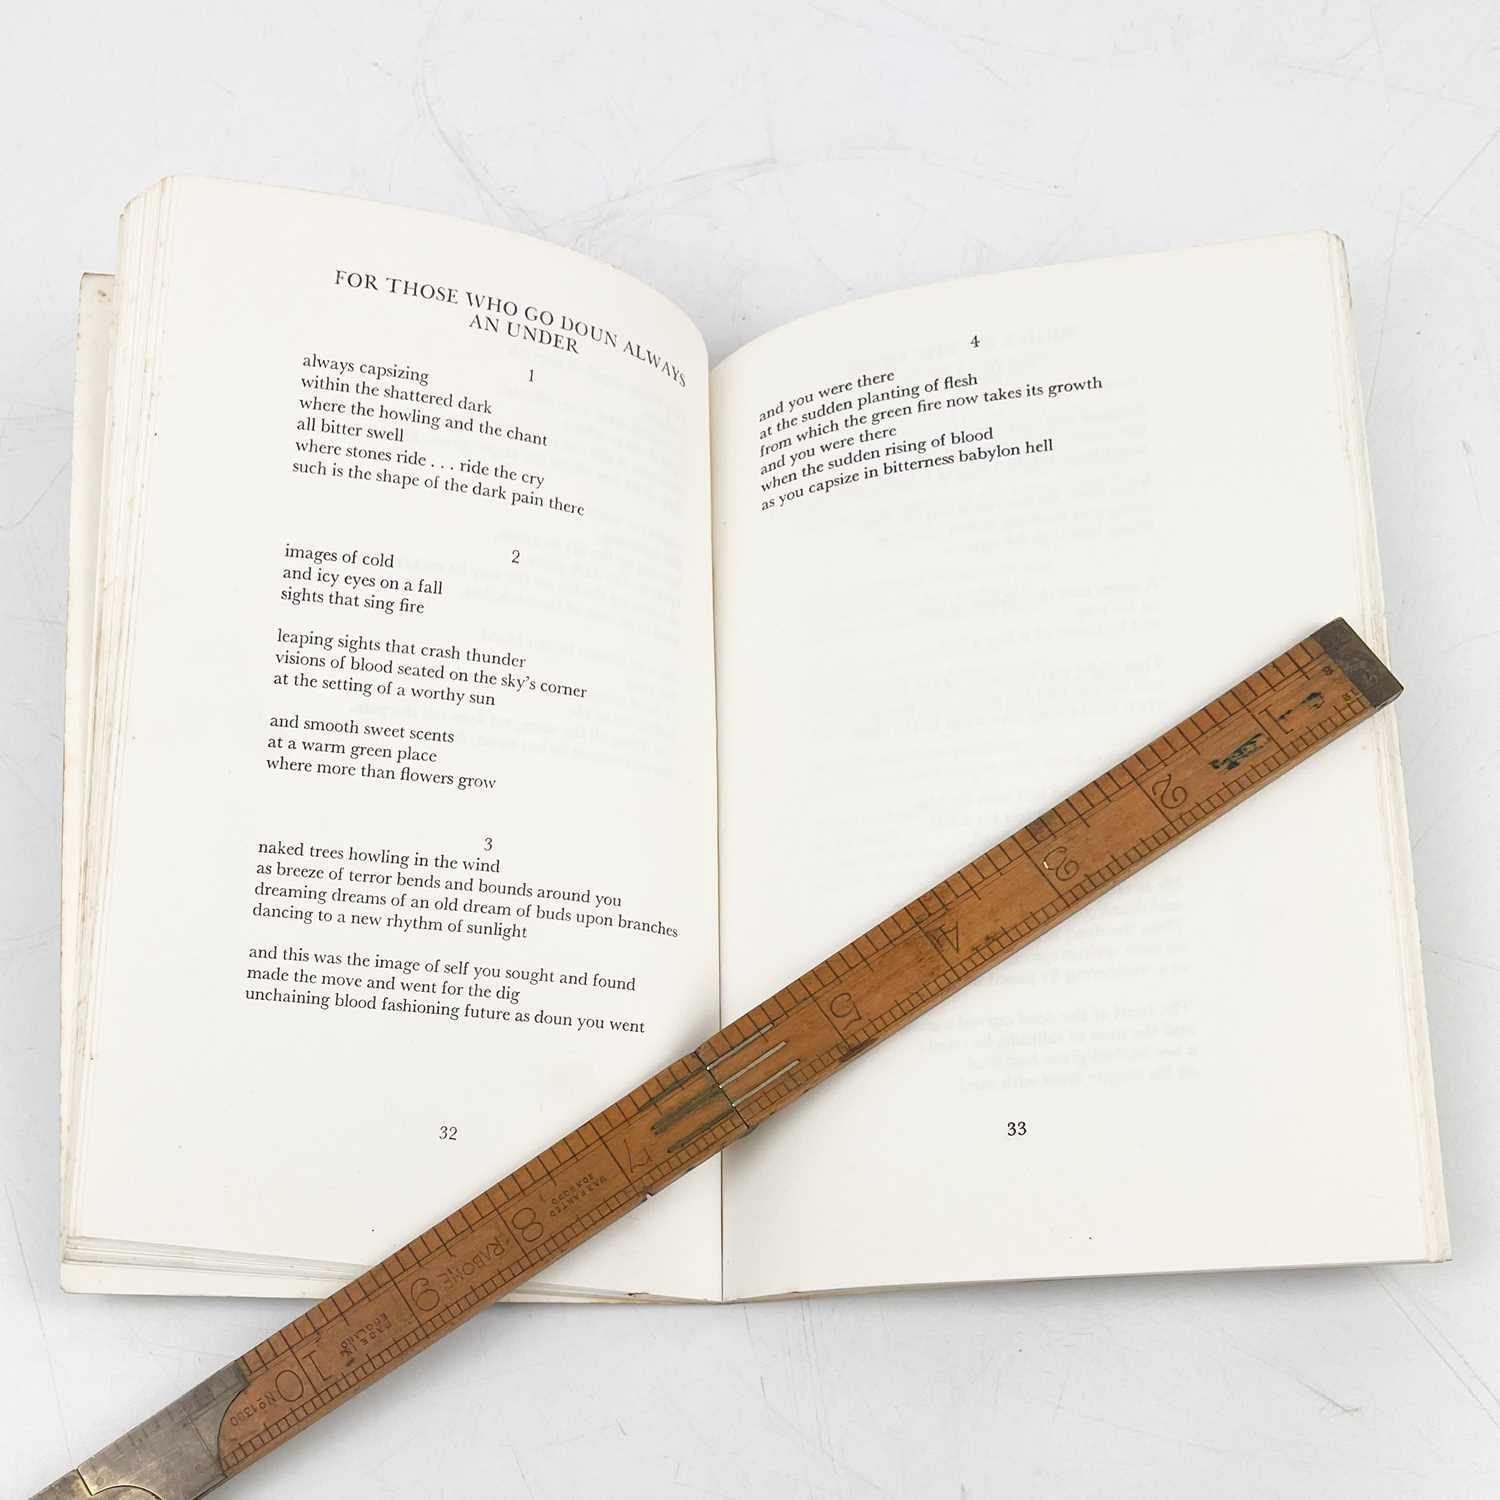 FOR THOSE WHO GO DOUN ALWAYS
AN UNDER
1
always capsizing
within the shattered dark
where the howling and the chant
all bitter swell
where stones ride . . . ride the cry
such is the shape of the dark pain there
2
images of cold
and icy eyes on a fall
sights that sing fire
leaping sights that crash thunder
visions of blood seated on the sky's corner
at the setting of a worthy sun
and smooth sweet scents
at a warm green place
where more than flowers grow
3
naked trees howling in the wind
as breeze of terror bends and bounds around you
dreaming dreams of an old dream of buds upon branches
dancing to a new rhythm of sunlight
and this was the image of self you sought and found
made the move and went for the dig
unchaining blood fashioning future as doun you went
32
4
and you were there
at the sudden planting of flesh
from which the green fire now takes its growth
and you were there
when the sudden rising of blood
as you capsize in bitterness babylon hell
33
1
2
3
4
5
7
WARRANTED
BOXWOOD
8
RABONE
9
MADE IN
ENGLAND
10
No 1380